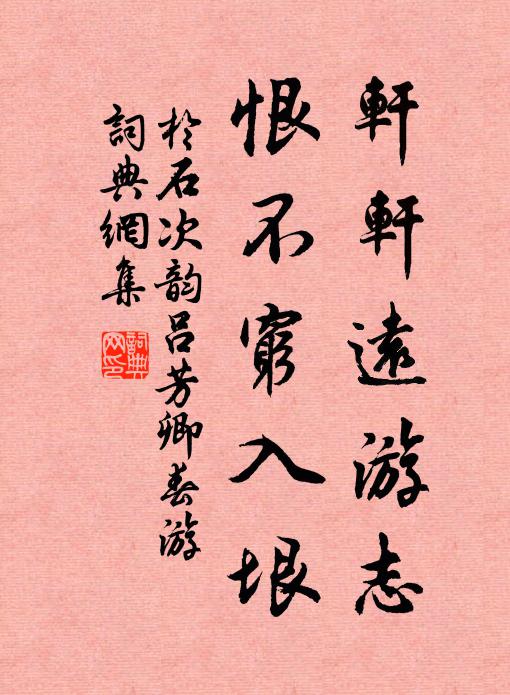 軒軒遠游志
恨不窮入垠
於石次韵吕芳卿春游
詞典網集
詞典网印